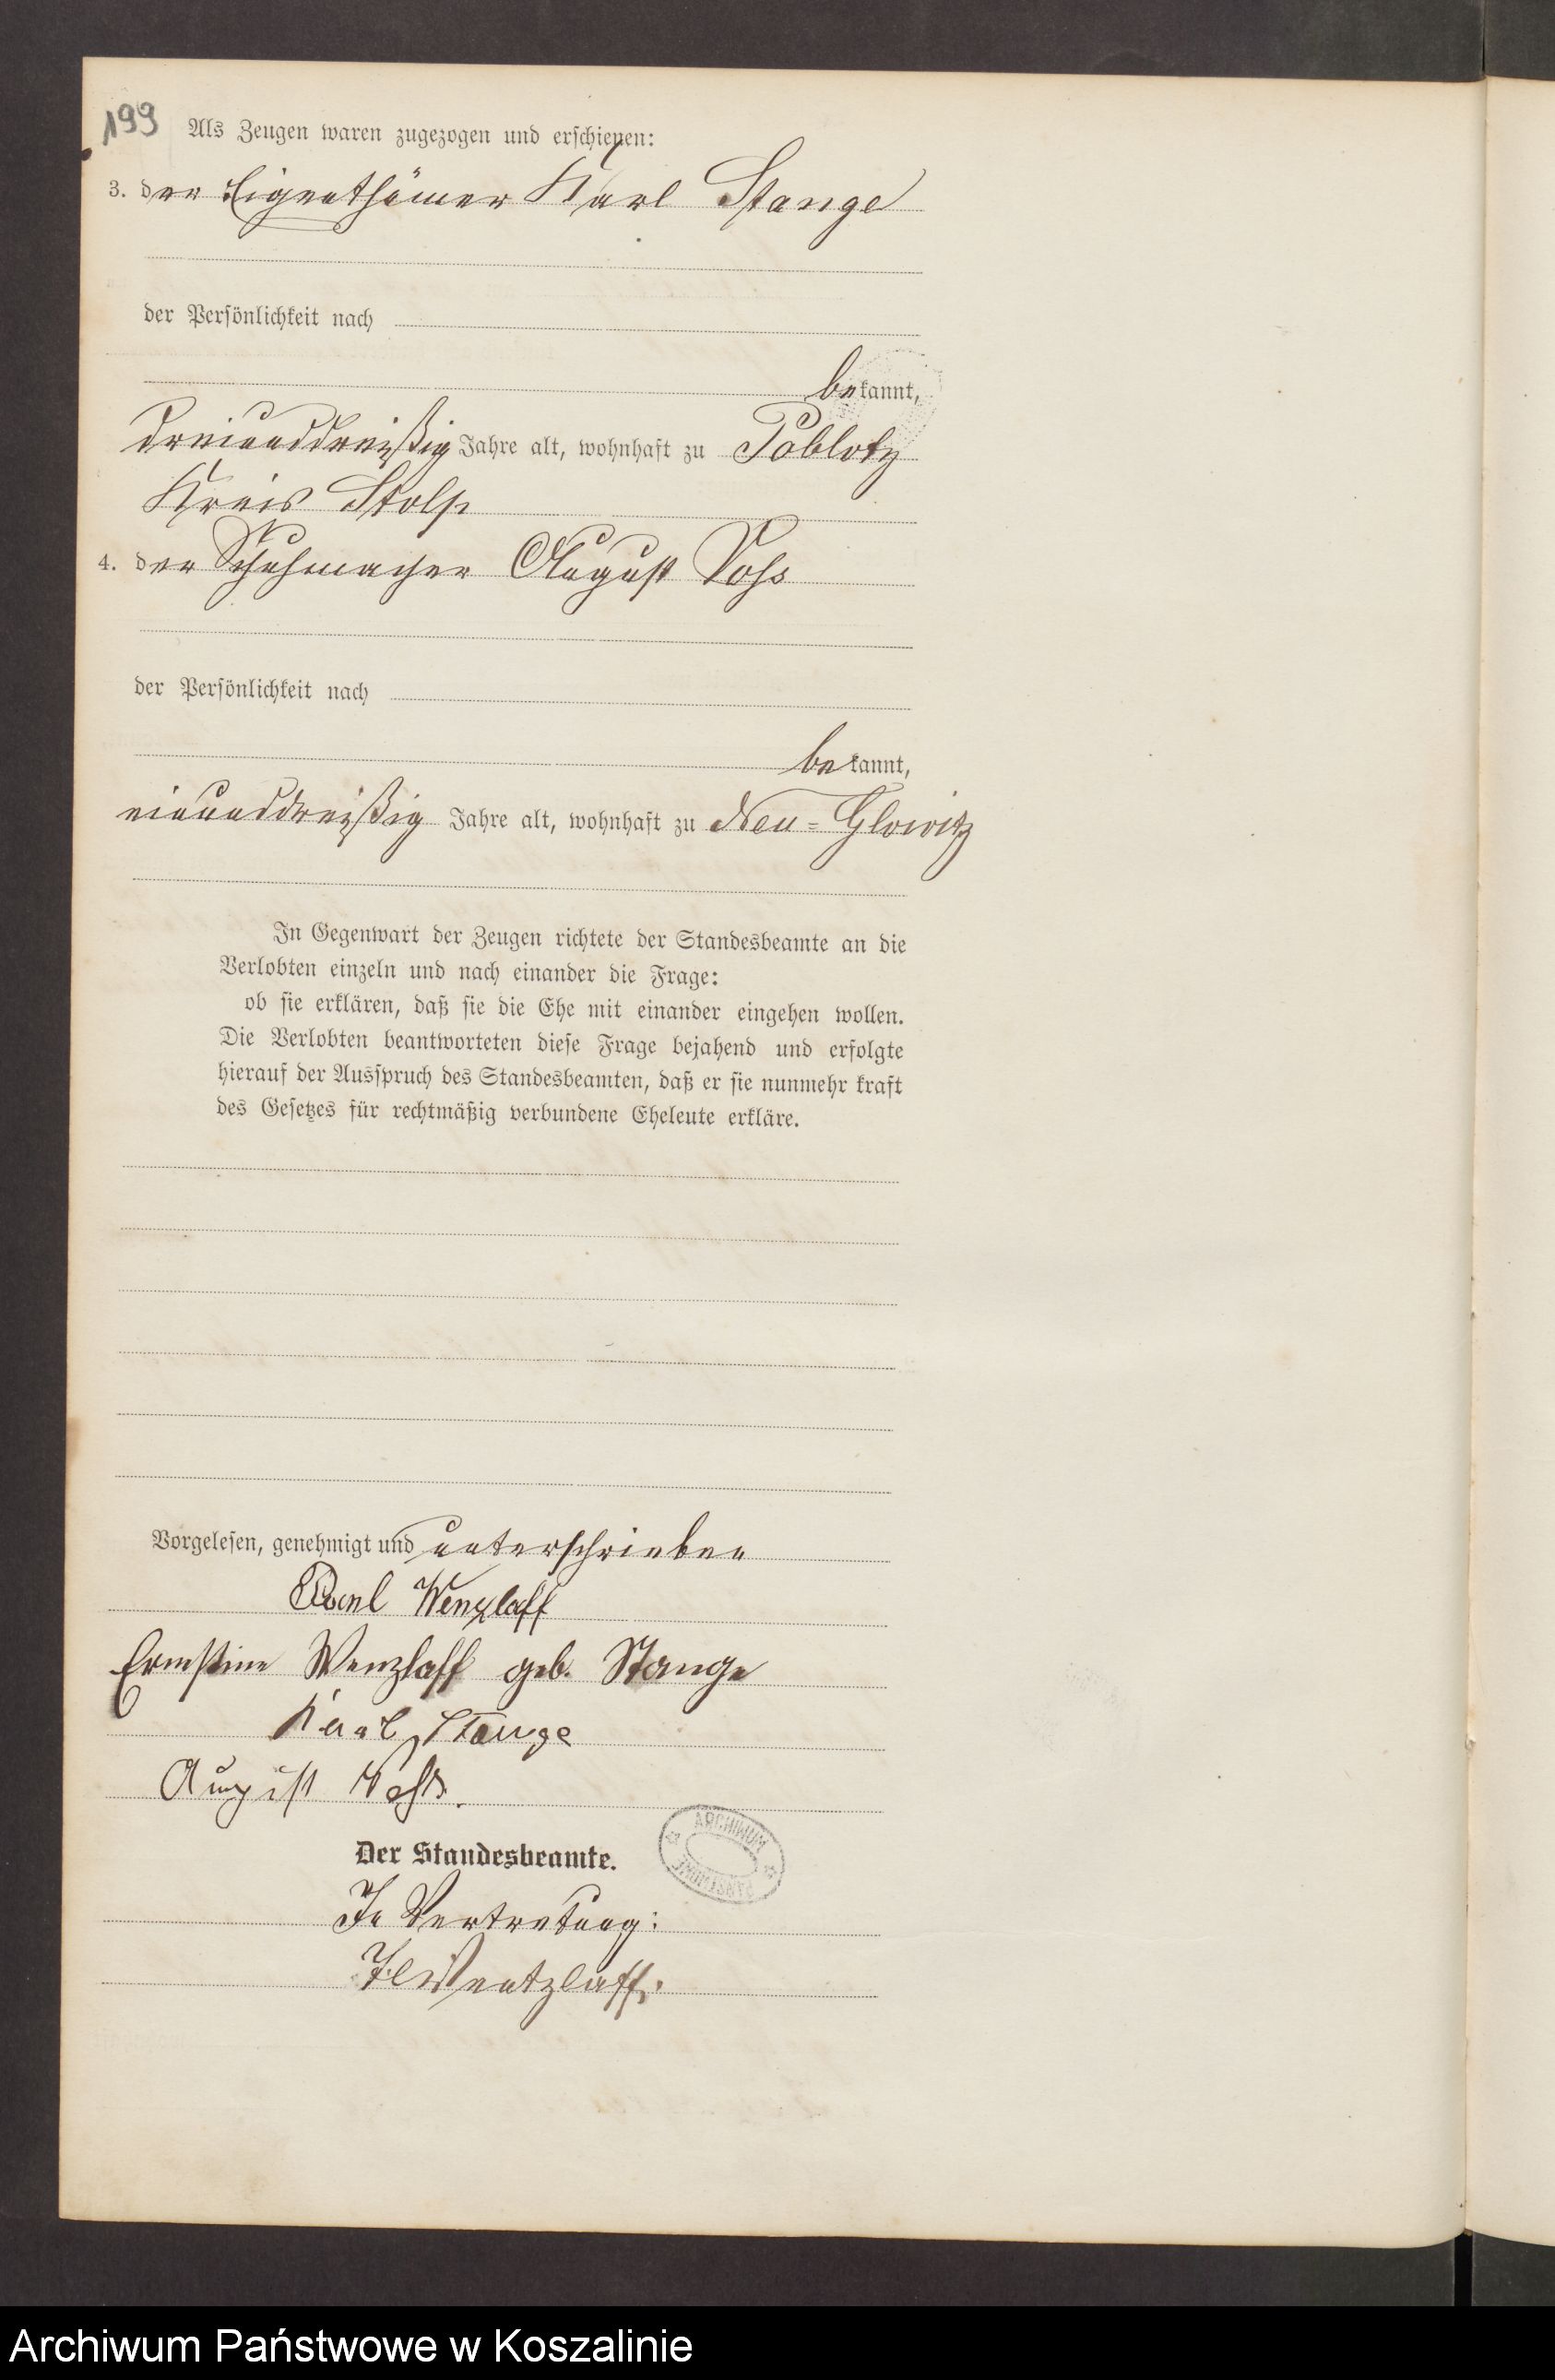 199
Als Zeugen waren zugezogen und erschienen:
3. der Eigenthümer Karl Stange
der Persönlichkeit nach
bekannt,
dreiunddreißig Jahre alt, wohnhaft zu Poblotz
Kreis Stolp
4. der Schuhmacher August Vohs
der Persönlichkeit nach
bekannt,
einunddreißig Jahre alt, wohnhaft zu Neu-Glowitz
In Gegenwart der Zeugen richtete der Standesbeamte an die
Verlobten einzeln und nach einander die Frage:
ob sie erklären, daß sie die Ehe mit einander eingehen wollen.
Die Verlobten beantworteten diese Frage bejahend und erfolgte
hierauf der Ausspruch des Standesbeamten, daß er sie nunmehr kraft
des Gesetzes für rechtmäßig verbundene Eheleute erkläre.
Vorgelesen, genehmigt und unterschrieben
Wenzlaff
Ernestine Wenzlaff geb. Stange
Karl Stange
August Vohs.
Der Standesbeamte.
ARCHIWUM PAŃSTWOWE
In Vertretung:
Wentzlaff.
Archiwum Państwowe w Koszalinie